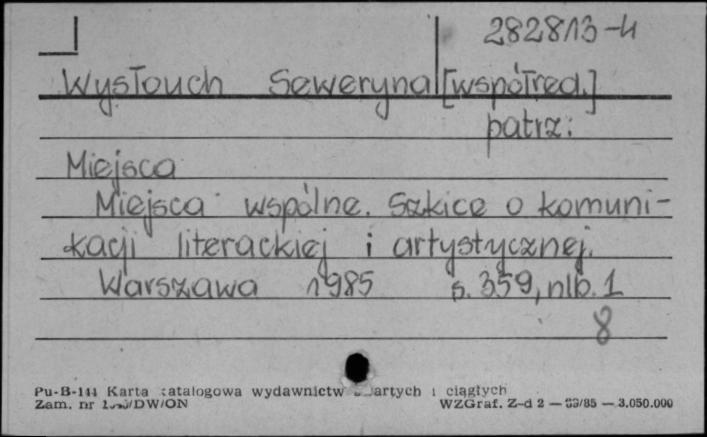 282813-4
Wysłouch Seweryna [współred.]
patrz:
Miejsca
Miejsca wspólne. Szkice o komuni-
kacji literackiej i artystycznej.
Warszawa 1985 s. 359, nlb. 1
8
Pu-B-144 Karta katalogowa wydawnictw i ciągłych
Zam. nr WZGraf. Z-d 2 — /85 — 3.050.000